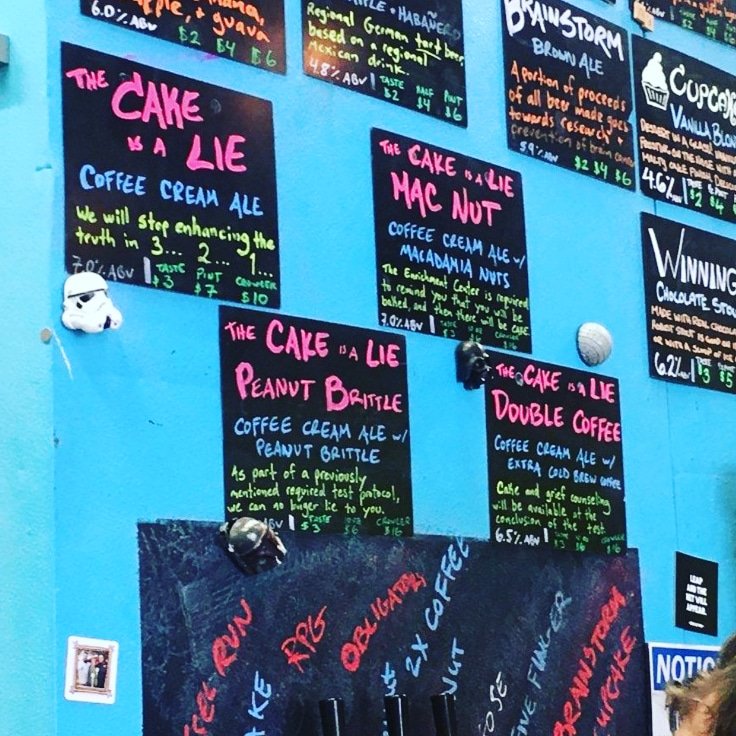 guava
6.0% ABV $2 $4 $6
+ HABAÑERO
Regional German tart beer
based on a regional
Mexican drink.
4.8% ABV TASTE HALF PINT
$2 $4 $6
BRAINSTORM
BROWN ALE
A portion of proceeds
of all beer made goes
towards research +
prevention of brain cancer
5.9% ABV $2 $4 $6
VANILLA
4.6%
$2 $4
THE CAKE
IS A LIE
COFFEE CREAM ALE
We will stop enhancing the
truth in 3... 2... 1...
7.0% ABV TASTE PINT CROWLER
$3 $7 $10
THE CAKE IS A LIE
MAC NUT
COFFEE CREAM ALE W/
MACADAMIA NUTS
The Enrichment Center is required
to remind you that you will be
baked, and then there will be cake.
7.0% ABV
WINNING
CHOCOLATE
MADE WITH REAL
6.2%
$3 $5
THE CAKE IS A LIE
PEANUT BRITTLE
COFFEE CREAM ALE W/
PEANUT BRITTLE
As part of a previously
mentioned required test protocol,
we can no longer lie to you.
ABV TASTE CROWLER
$3 $6 $16
THE CAKE IS A LIE
DOUBLE COFFEE
COFFEE CREAM ALE W/
EXTRA COLD BREW COFFEE
Cake and grief counseling
will be available at the
conclusion of the test
6.5% ABV
RUN
RPG
OBLIGATORY
2X COFFEE
NUT
FINGER
BRAINSTORM
CUPCAKE
LEAP
AND THE
NET WILL
APPEAR.
NOTIC